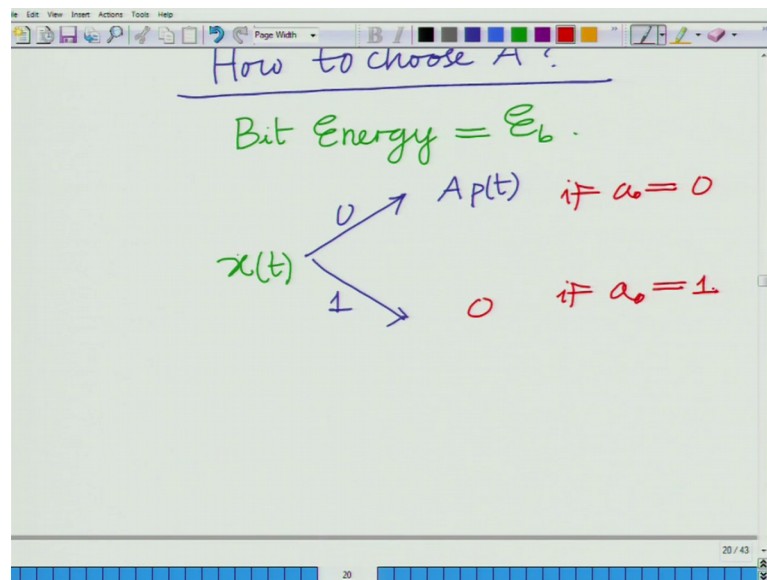 le Edit View Insert Actions Tools Help
Page Width
B I
How to choose A ?
Bit Energy = ℰb .
0 Ap(t) if a₀ = 0
x(t)
1 0 if a₀ = 1.
20 / 43
20